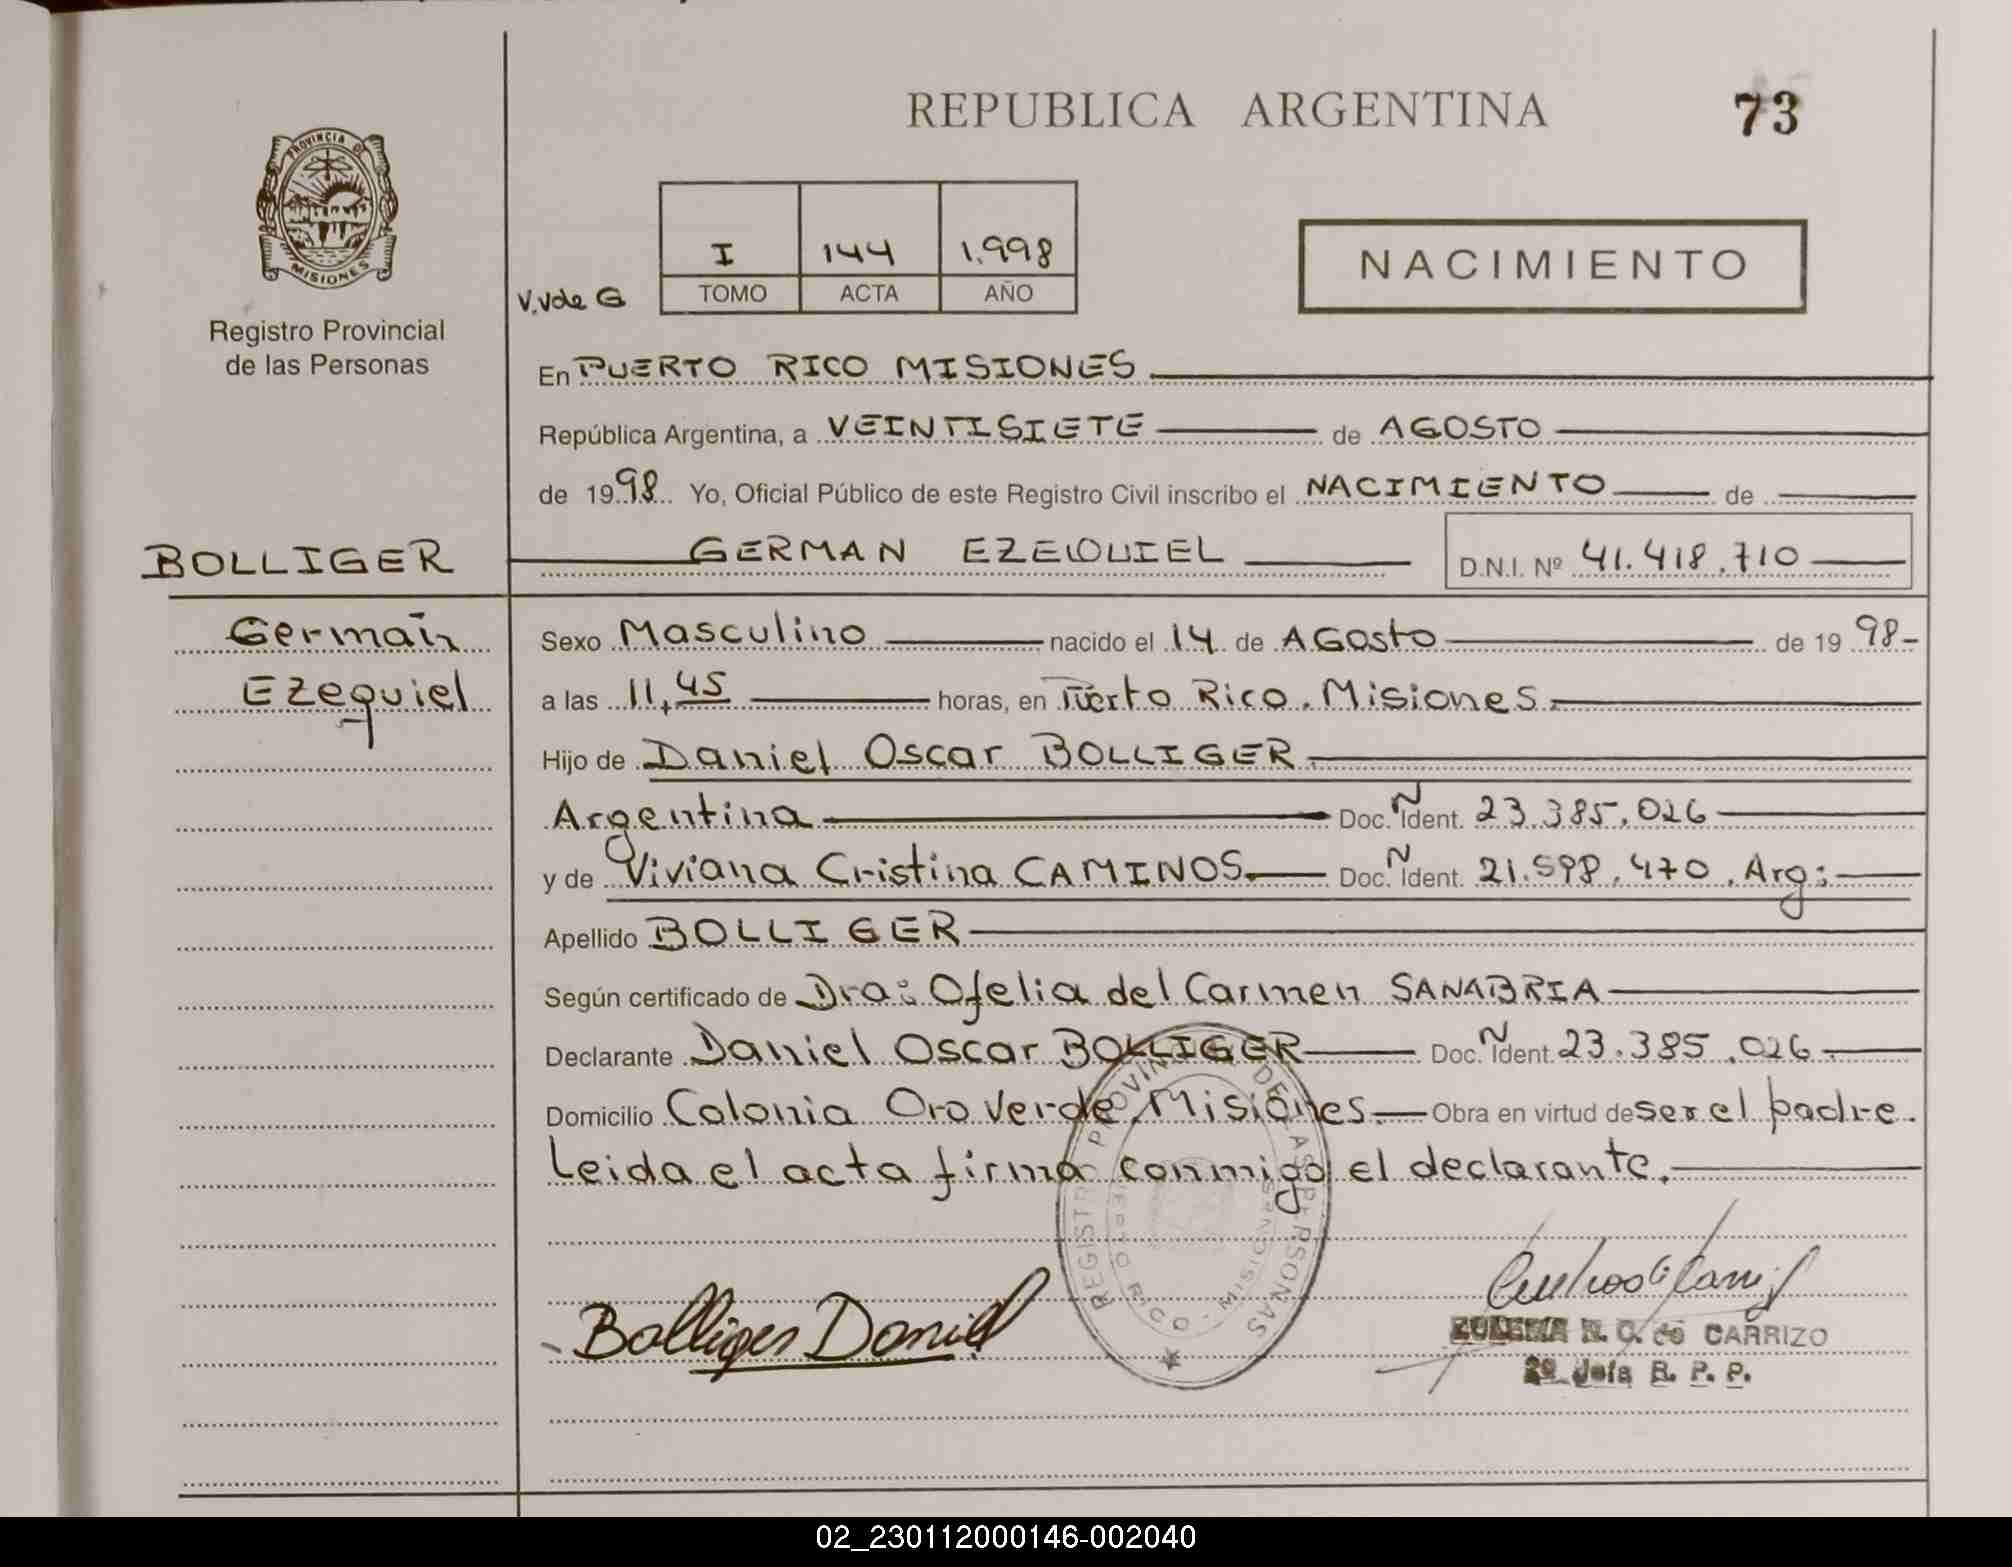 REPUBLICA ARGENTINA
73
PROVINCIA DE
MISIONES
Registro Provincial
de las Personas
V.V de G
I 144 1.998
TOMO ACTA AÑO
NACIMIENTO
En PUERTO RICO MISIONES
República Argentina, a VEINTISIETE de AGOSTO
de 1998 Yo, Oficial Público de este Registro Civil inscribo el NACIMIENTO de
BOLLIGER
GERMAN EZEQUIEL D.N.I. Nº 41.418.710
Germán
Ezequiel
Sexo Masculino nacido el 14 de AGOsto de 19 98-
a las 11,45 horas, en Puerto Rico. Misiones.
Hijo de Daniel Oscar BOLLIGER.
Argentina Doc. Ñ Ident. 23.385.026
y de Viviana Cristina CAMINOS. Doc. Ñ Ident. 21.598.470. Arg:
Apellido BOLLIGER
Según certificado de Dra: Ofelia del Carmen SANABRIA
Declarante Daniel Oscar BOLLIGER Doc. Ñ Ident. 23.385.026.
Domicilio Colonia Oro Verde, Misiones. Obra en virtud de ser el padre.
Leida el acta firma conmigo el declarante.
REGISTRO PROVINCIAL DE LAS PERSONAS
PUERTO RICO - MISIONES
Bolliger Daniel
ZULEMA R. C. de CARRIZO
2º Jefa R. P. P.
02_230112000146-002040